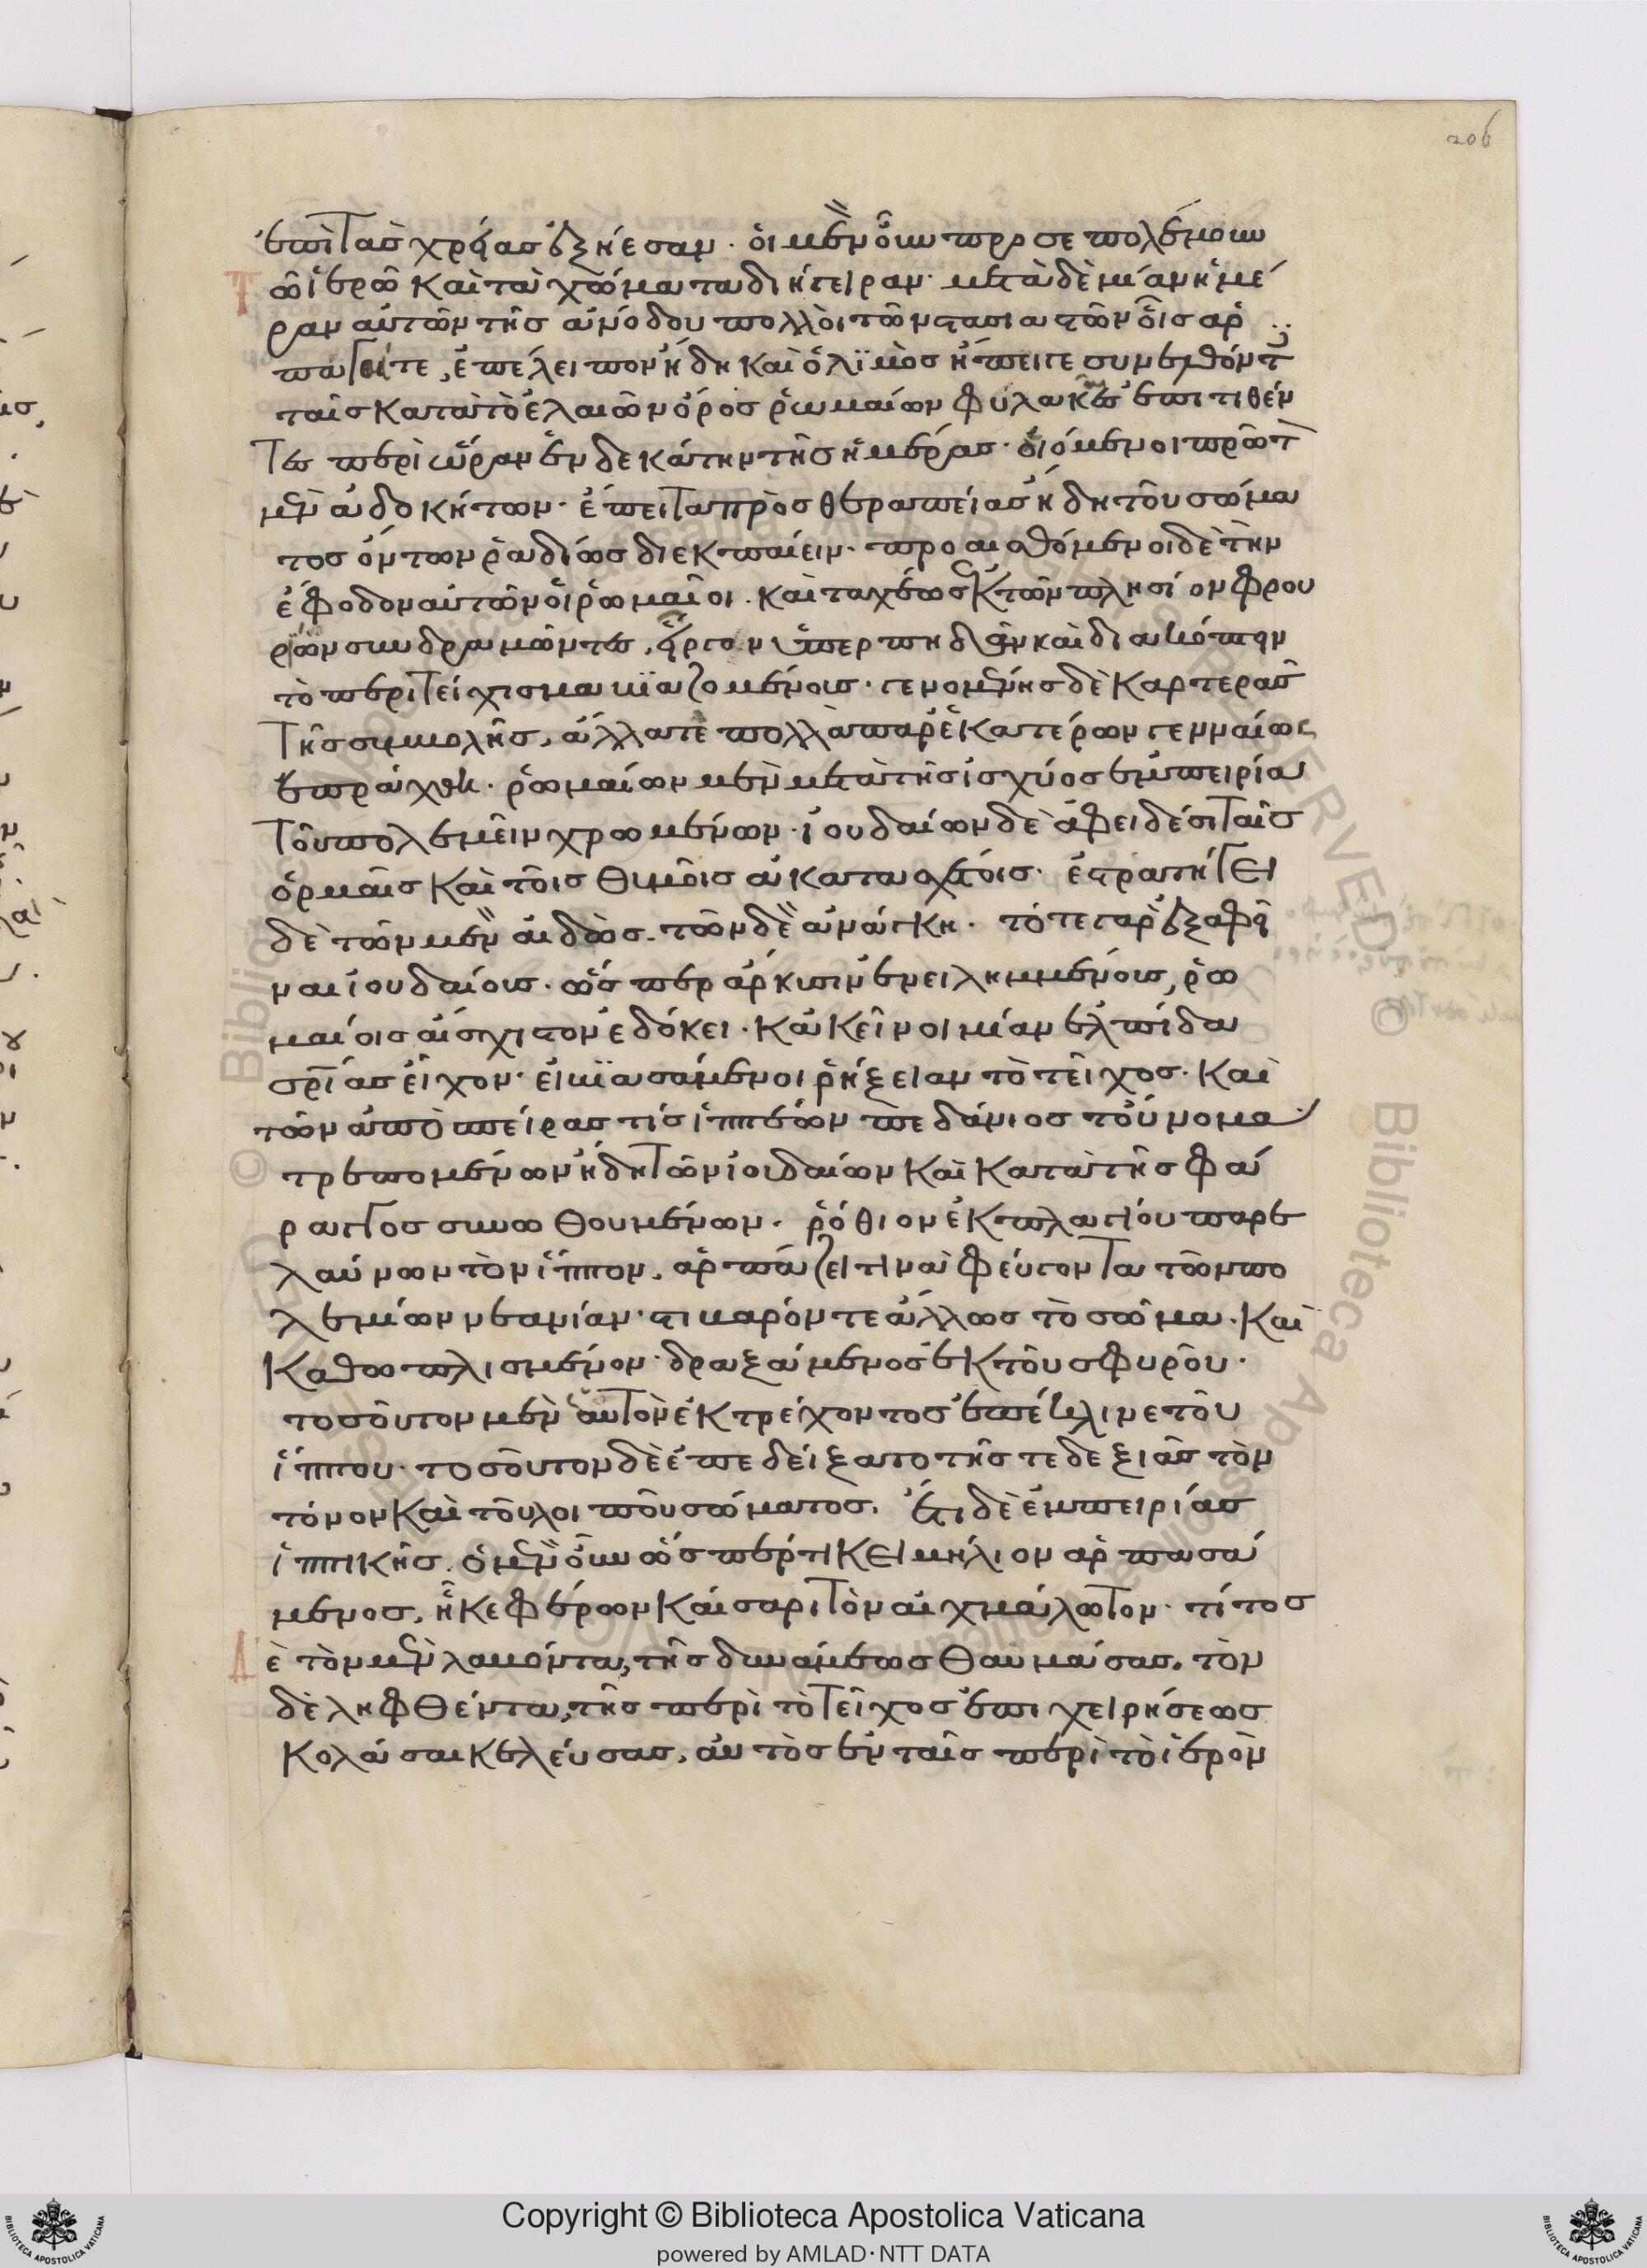 206
ἐπὶ τὰς χρείας ἐξῄεσαν. οἱ μὲν οὖν προσεπολέμουν
τῷ ἱερῷ καὶ τὰ χώματα διήγειραν. μετὰ δὲ μίαν ἡμέ
ραν αὐτῶν τῆς ἀνόδου πολλοὶ τῶν στασιαστῶν οἷς ἁρ
παγαί τε, ἐπέλειπον ἤδη καὶ ὁ λιμὸς ἤπειγε συνελθόντ
ταῖς κατὰ τὸ ἐλαιῶν ὄρος ῥωμαίων φυλακαῖς ἐπιτίθεν
ται περὶ ὥραν ἑνδεκάτην τῆς ἡμέρας. οἰόμενοι πρῶτ
μὲν ἀδοκήτων. ἔπειτα πρὸς θεραπείας ἤδη τοῦ σώμα
τος ὄντων ῥαδίως διεκπαίειν. προαισθόμενοι δὲ τὴν
ἔφοδον αὐτῶν οἱ ῥωμαῖοι. καὶ ταχέως ἐκ τῶν πλησίον φρου
ρίων συνδραμόντες, εἶργον ὑπερπηδᾶν καὶ διακόπτειν
τὸ περιτείχισμα βιαζομένους. γενομένης δὲ καρτερᾶς
τῆς συμβολῆς, ἄλλα τε πολλὰ παρ' ἑκατέρων γενναίως
ἐπράχθη. ῥωμαίων μὲν μετὰ τῆς ἰσχύος ἐμπειρία
τοῦ πολεμεῖν χρωμένων. ἰουδαίων δὲ ἀφειδέσι ταῖς
ὁρμαῖς καὶ τοῖς θυμοῖς ἀκατασχέτοις. ἐστρατήγει
δὲ τῶν μὲν αἰδὼς. τῶν δὲ ἀνάγκη. τό τε γὰρ ἐξαφεῖ
ναι ἰουδαίους. ὥσπερ ἄρκυσιν ἐνειλημμένους, ῥω
μαίοις αἴσχιστον ἐδόκει. κἀκεῖνοι μίαν ἐλπίδα
σρίας εἶχον. εἰ βιασάμενοι ῥήξειαν τὸ τεῖχος. καὶ
τῶν ἀπὸ σπείρας τίς ἱππέων πεδάνιος τοὔνομα
τρεπομένων ἤδη τῶν ἰουδαίων καὶ κατὰ τῆς φά
ραγγος συνωθουμένων. ῥόθιον ἐκ πλαγίου παρε
λαύνων τὸν ἵππον. ἁρπάζει τινὰ φεύγοντα τῶν πο
λεμίων νεανίαν. στιβαρόν τε ἄλλως τὸ σῶμα. καὶ
καθωπλισμένον. δραξάμενος ἐκ τοῦ σφυροῦ.
τοσοῦτον μὲν ἑαυτὸν ἐκ τρέχοντος ἐπέκλινε τοῦ
ἵππου. τοσοῦτον δὲ ἐπεδείξατο τῆς τε δεξιᾶς τὸν
τόνον καὶ τοῦ λοιποῦ σώματος. ἔτι δὲ ἐμπειρίας
ἱππικῆς. ὁ μὲν οὖν ὥσπερ τι κειμήλιον ἁρπασά
μενος, ἧκε φέρων καίσαρι τὸν αἰχμάλωτον. τίτος
δὲ τὸν μὲν λαβόντα, τῆς δυνάμεως θαυμάσας. τὸν
δὲ ληφθέντα, τῆς περὶ τὸ τεῖχος ἐπιχειρήσεως
κολάσαι κελεύσας, αὐτὸς ἐν ταῖς περὶ τὸ ἱερὸν
Copyright © Biblioteca Apostolica Vaticana
powered by AMLAD·NTT DATA